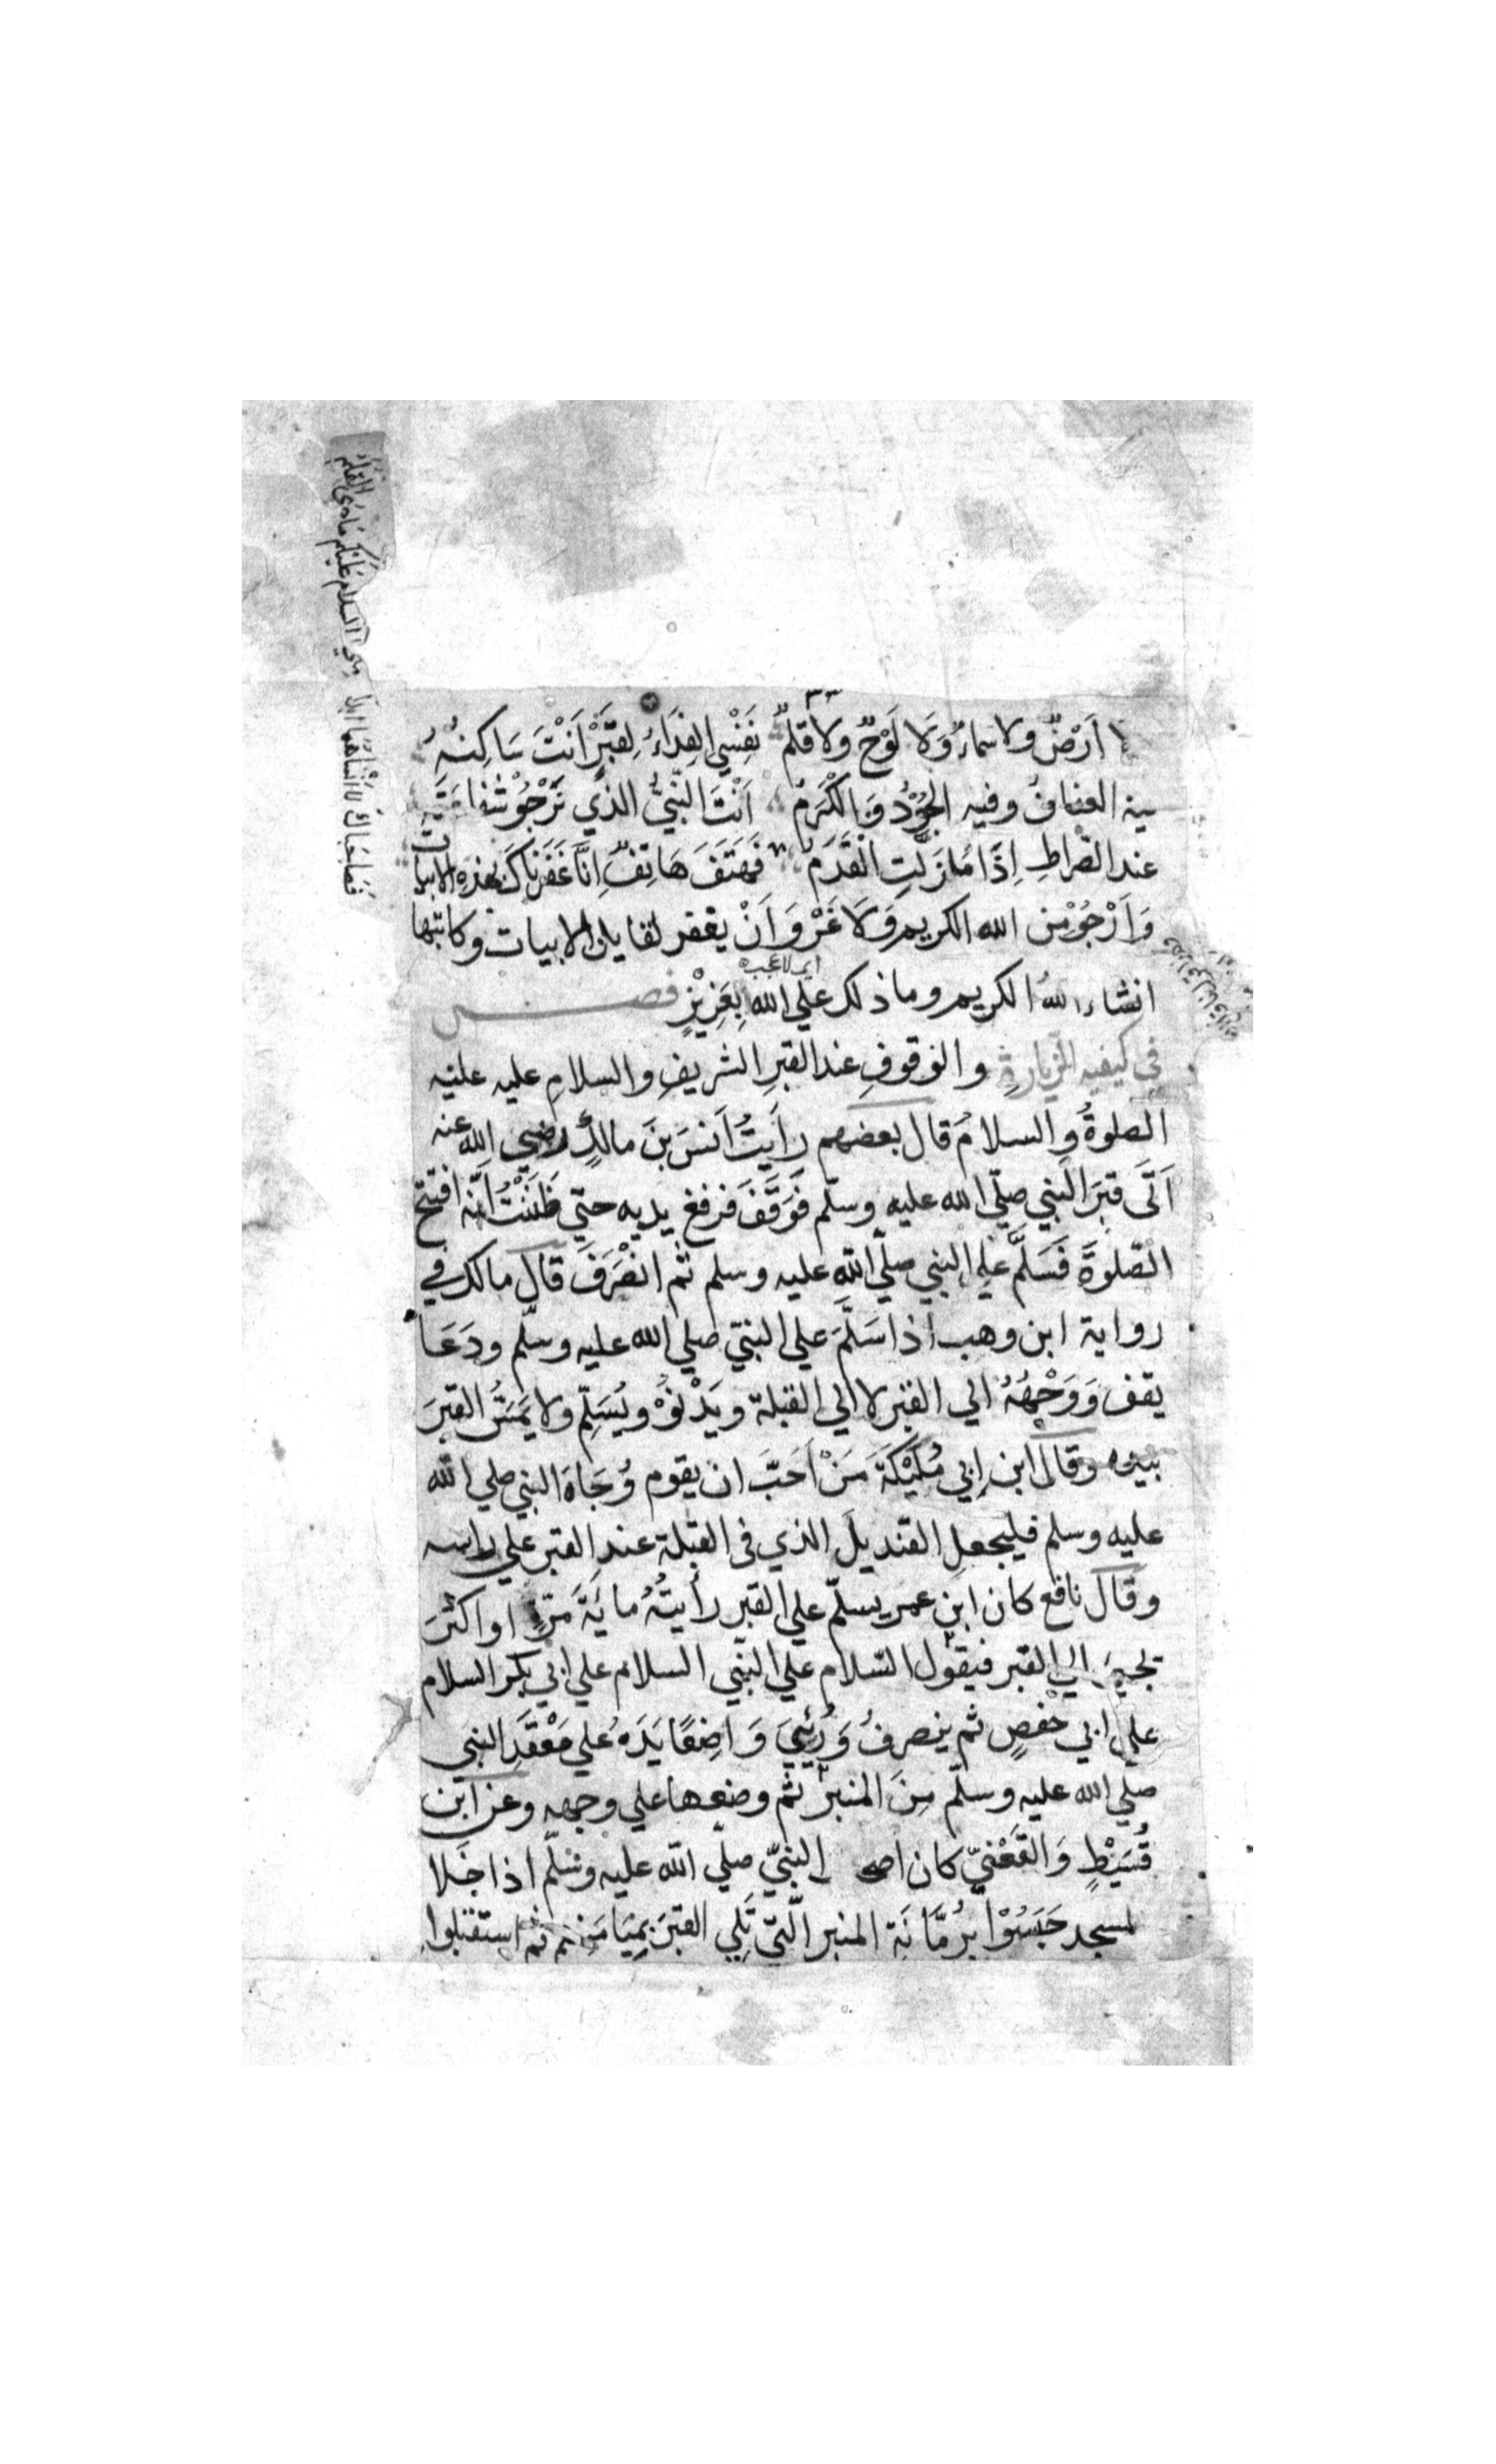 لا اَرْضٌ ولا سماءٌ وَلا لَوْحٌ ولا قلمٌ نَفْسِي الفِدَاءُ لِقَبْرٍ اَنْتَ سَاكِنُهُ
فيه العفافُ وفيه الجُوْدُ وَالكَرَمُ اَنْتَ النَّبِيُّ الذي نَرْجُوْ شفاعَتَهُ
عند الصِّراطِ اِذَا مَا زَلَّتِ القَدَمُ فَهَتَفَ هَاتِفٌ اِنَّا غَفَرْنَاكَ بهذه الابيات
وَاَرْجُوْ من الله الكريم وَلا غَرْوَ اَنْ يغفر لقايل الابيات وكاتبها
اي لا عجب
انشاء الله الكريم وما ذلك علي الله بِعَزِيْزٍ فصل
في كيفيه الزيارةِ والوقوفِ عند القبرِ الشريفِ والسلامِ عليه عليه
الصلوةُ والسلامُ قال بعضهم رأيتُ اَنسَ بنَ مالكٍ رضي الله عنه
اَتَى قبرَ النبي صلّي الله عليه وسلّم فَوَقَفَ فرفع يديه حتي ظَنَنْتُ اَنَّه افتتح
الصّلوةَ فَسَلَّمَ علي النبي صلّي الله عليه وسلم ثم انْصَرَفَ قال مالك في
رواية ابن وهب اذا سَلَّمَ علي النبيّ صلي الله عليه وسلّم ودَعَا
يقف وَوَجْهُهُ الي القبر لا الي القبلة ويَدْنُوْ ويُسَلِّم ولا يَمَسُّ القبرَ
بيده وقال ابن ابي مُلَيْكَةَ مَنْ اَحَبَّ ان يقوم وُجَاهَ النبي صلي الله
عليه وسلم فليجعلِ القنديلَ الذي في القبلة عند القبر علي راسه
وقال نافع كان ابن عمر يسلّم علي القبر رأيتُهُ مايَةَ مَرّةٍ او اكثرَ
يجيءُ الي القبر فيقول السّلام علي النّبي السلام علي ابي بكر السلام
علي ابي حفصٍ ثم ينصرفُ وَرُئِيَ وَاضِعًا يَدَهُ علي مَقْعَدِ النبي
صلي الله عليه وسلّم مِنَ المنبر ثم وضعها علي وجهه وعن ابن
قُسَيْطٍ وَالقَعْنَبِيّ كان اصحاب النبيّ صلّي الله عليه وسلّم اذا خَلا
المسجد حَبَسُوْا بِرُمَّانَةِ المنبر الّتي تَلِي القبرَ بِمَيَامِنِهِم ثم استقبلوا